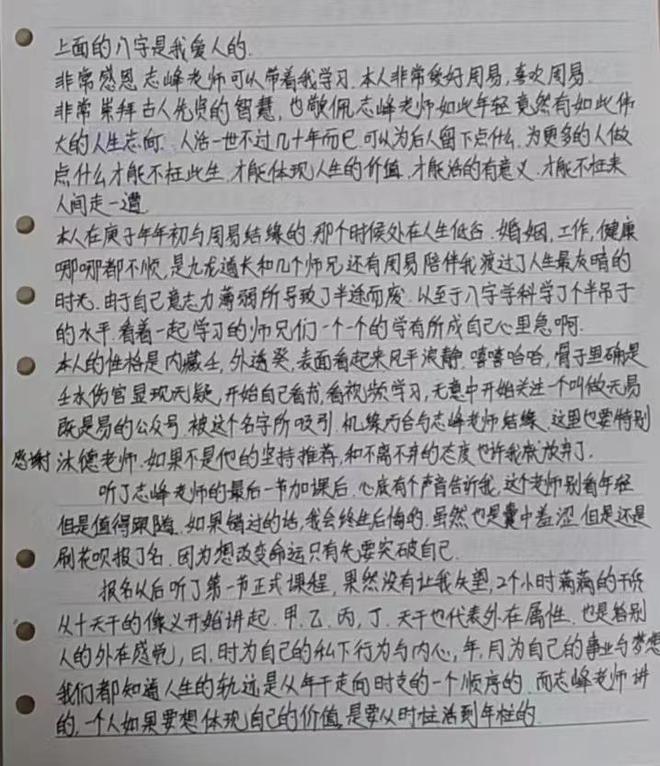 上面的八字是我爱人的.
非常感恩志峰老师可以带着我学习.本人非常爱好周易,喜欢周易.
非常崇拜古人先贤的智慧,也敬佩志峰老师如此年轻竟然有如此伟
大的人生志向.人活一世不过几十年而已.可以为后人留下点什么.为更多的人做
点什么才能不枉此生.才能体现人生的价值.才能活的有意义.才能不枉来
人间走一遭.
本人在庚子年年初与周易结缘的.那个时候处在人生低谷.婚姻,工作,健康
哪哪都不顺,是九龙道长和几个师兄还有周易陪伴我渡过了人生最灰暗的
时光.由于自己意志力薄弱所导致了半途而废.以至于八字学科学了个半吊子
的水平.看着一起学习的师兄们一个一个的学有所成自己心里急啊.
本人的性格是内藏壬,外透癸,表面看起来风平浪静.嘻嘻哈哈,骨子里确是
壬水伤官显现无疑,开始自己看书,看视频学习,无意中开始关注一个叫做无易
既是易的公众号.被这个名字所吸引.机缘巧合与志峰老师结缘.这里也要特别
感谢 沐德老师.如果不是他的坚持推荐,和不离不弃的态度也许我就放弃了.
听了志峰老师的最后一节加课后.心底有个声音告诉我,这个老师别看年轻
但是值得跟随.如果错过的话,我会终生后悔的.虽然也是囊中羞涩.但是还是
刷花呗报了名.因为想改变命运只有先要突破自己.
报名以后听了第一节正式课程,果然没有让我失望,2个小时满满的干货
从十天干的像义开始讲起.甲、乙、丙、丁.天干也代表外在属性.也是给别
人的外在感觉,日、时为自己的私下行为与内心,年,月为自己的事业与梦想
我们都知道人生的轨迹是从年干走向时支的一个顺序的.而志峰老师讲
的,一个人如果要想体现自己的价值,是要从时柱活到年柱的